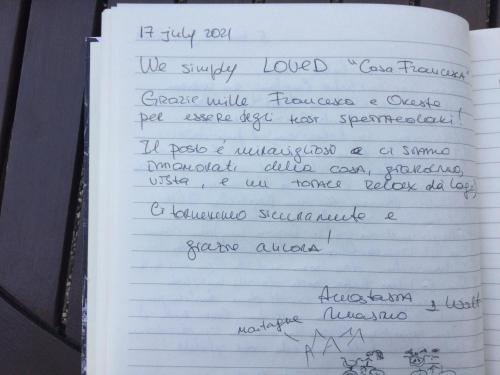 17 July 2021
We simply LOVED "Casa Francesca"
Grazie mille Francesca e Oreste
per essere degli host spettacolari!
Il posto è meraviglioso e ci siamo
innamorati della casa, giardino,
vista, e un totale relax da lago
Ci torneremo sicuramente e
grazie ancora!
Anastasia
montagne